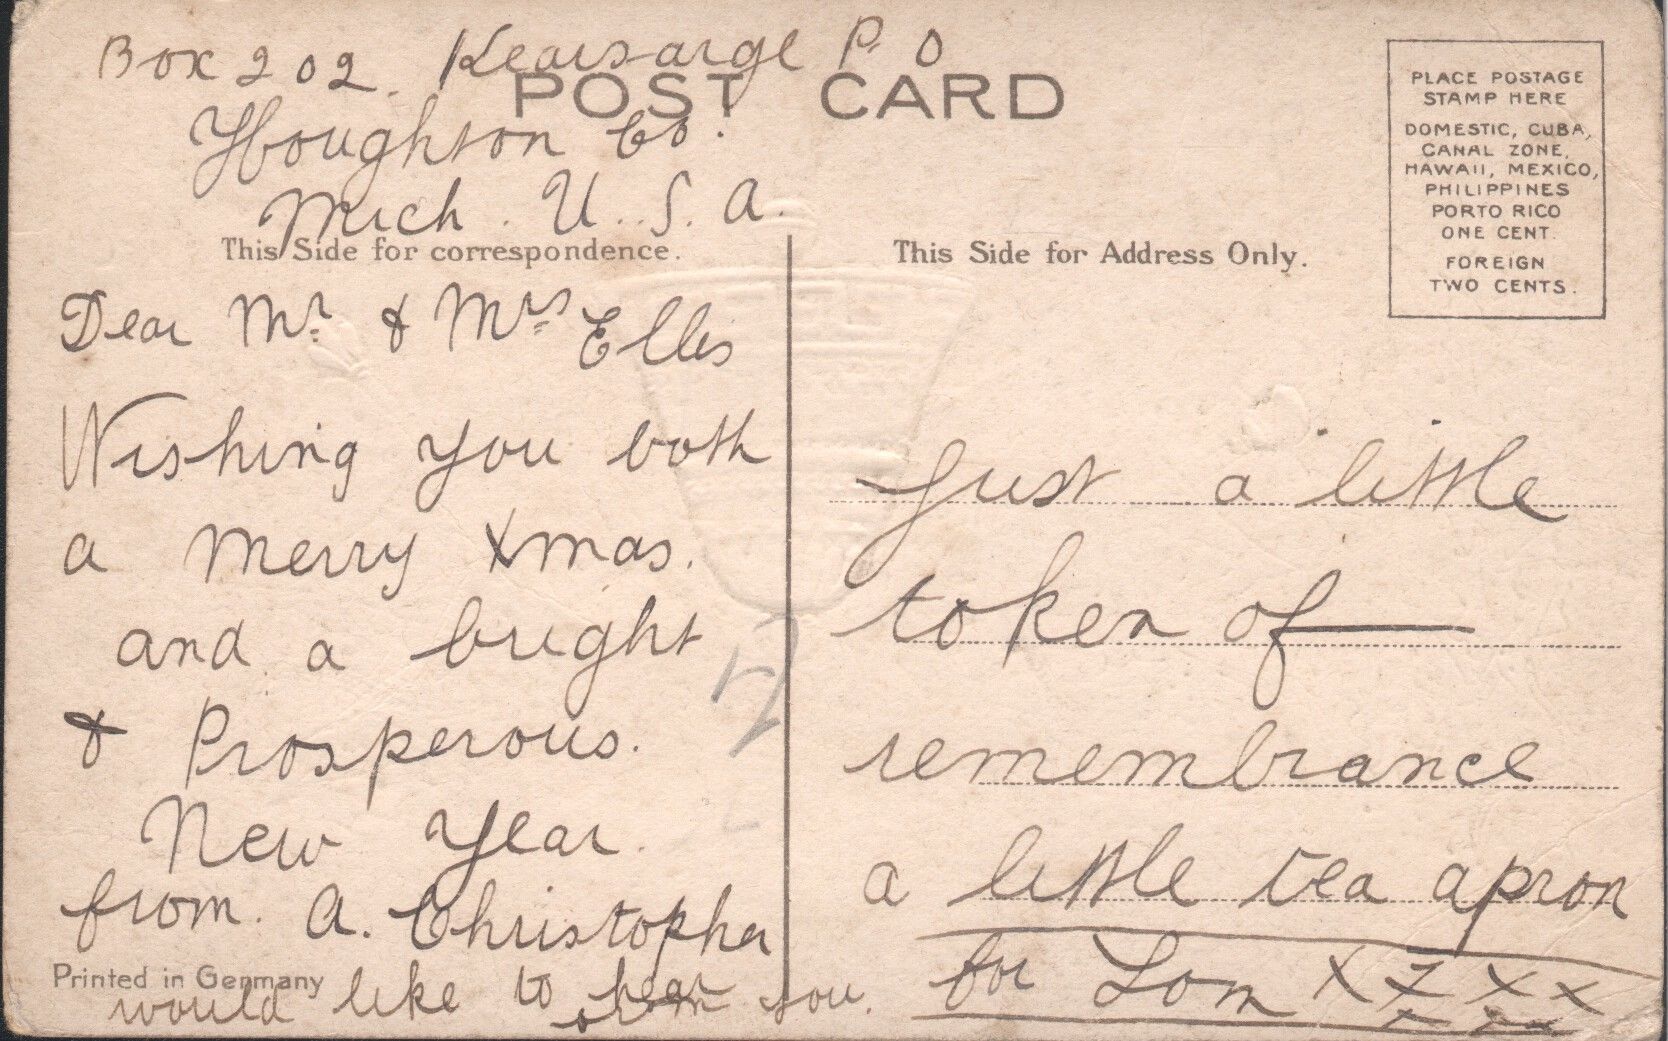 Box 202. Kearsarge P. O
POST CARD
Houghton Co.
Mich. U. S. A.
This Side for correspondence.
Dear Mr. & Mrs. Ellis
Wishing you both
a Merry Xmas.
and a bright
& Prosperous.
New Year.
from. A. Christopher
Printed in Germany
would like to hear
from you.
PLACE POSTAGE
STAMP HERE
DOMESTIC, CUBA,
CANAL ZONE,
HAWAII, MEXICO,
PHILIPPINES
PORTO RICO
ONE CENT.
FOREIGN
TWO CENTS.
This Side for Address Only.
Just a little
token of
remembrance
a little tea apron
for xxxx
xxx